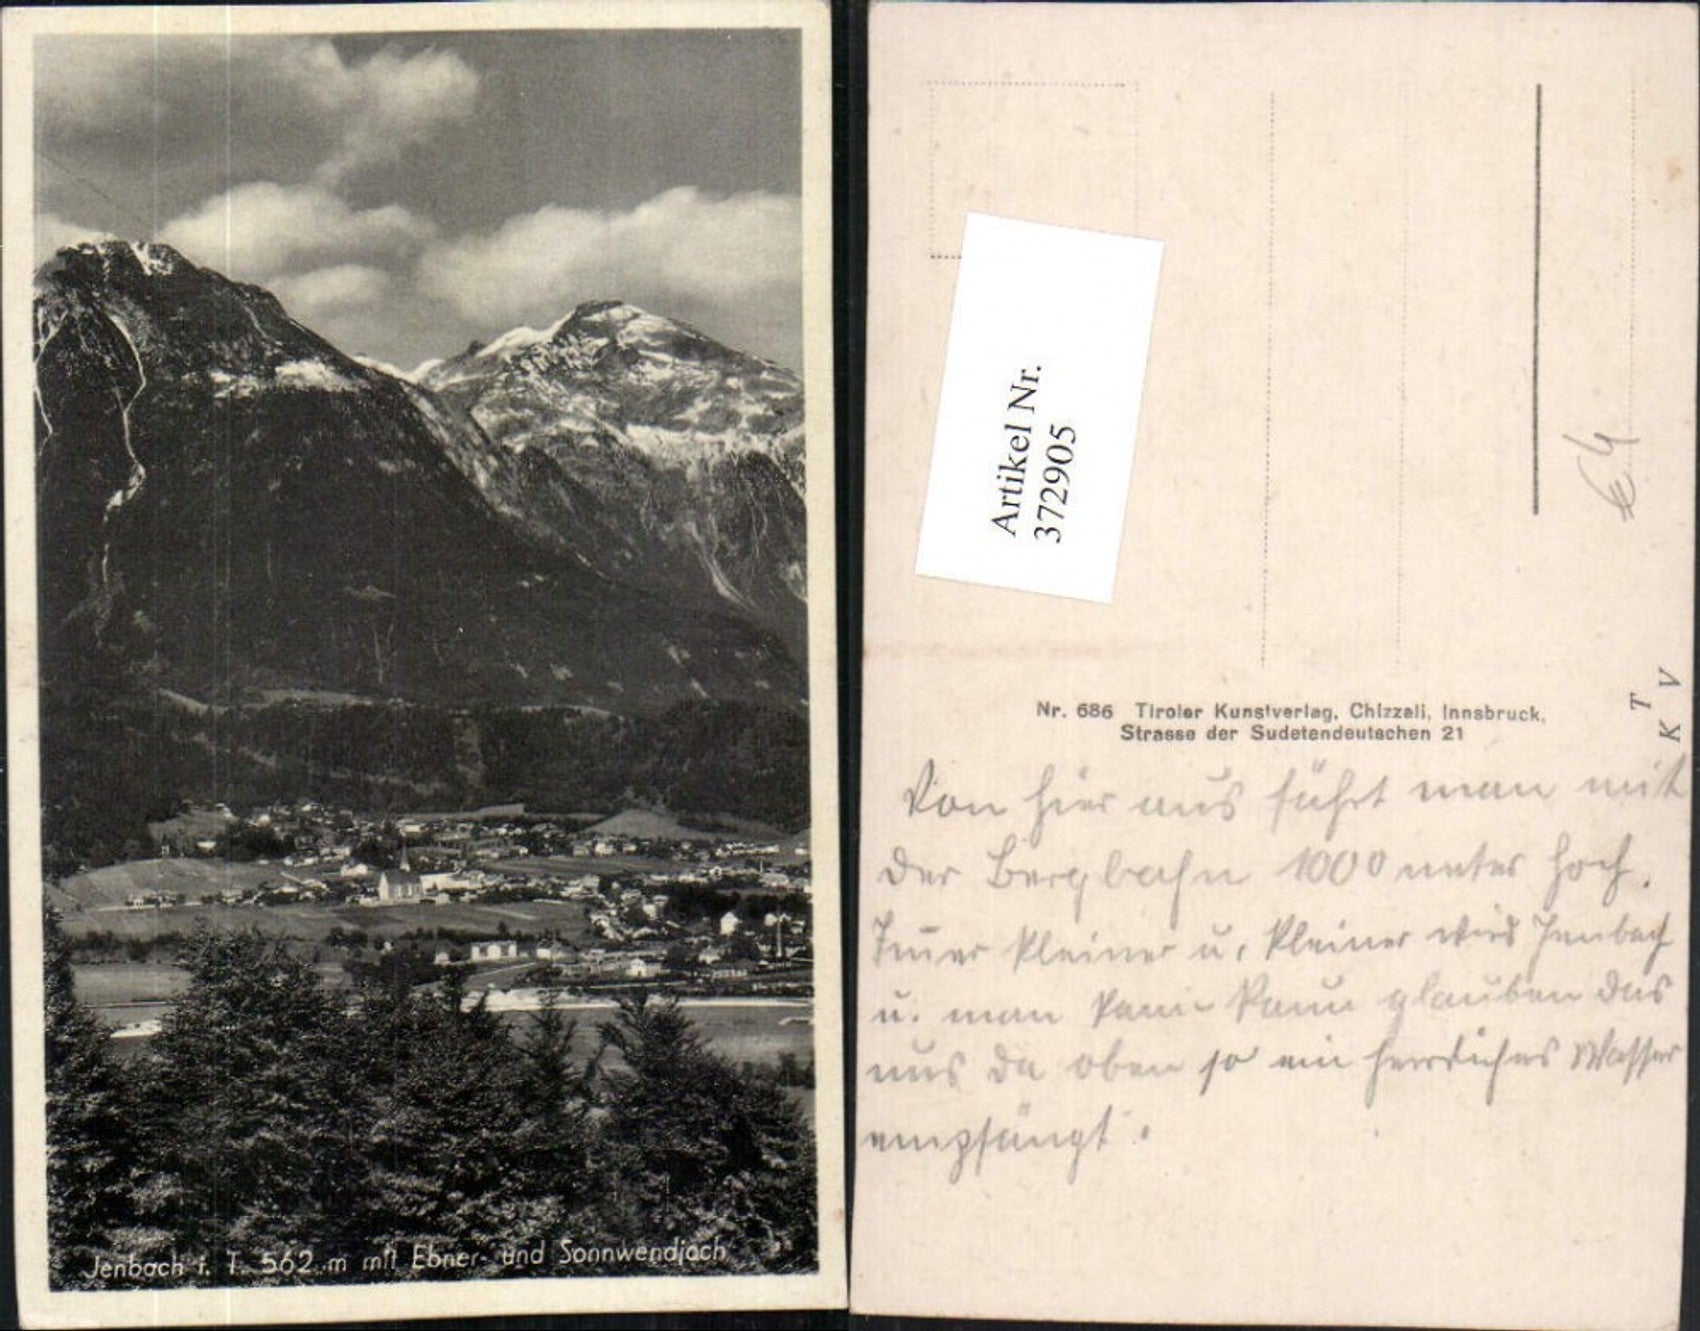 Jenbach i. T. 562 m mit Ebner- und Sonnwendjoch
Artikel Nr.
372905
€ 4
T
K V
Nr. 686 Tiroler Kunstverlag, Chizzali, Innsbruck,
Strasse der Sudetendeutschen 21
Von hier aus führt man mit
der Bergbahn 1000 meter hoch.
Im̄er kleiner u. kleiner wird Jenbach
u. man kann kaum glauben das
uns da oben so ein herrliches Wasser
empfängt.